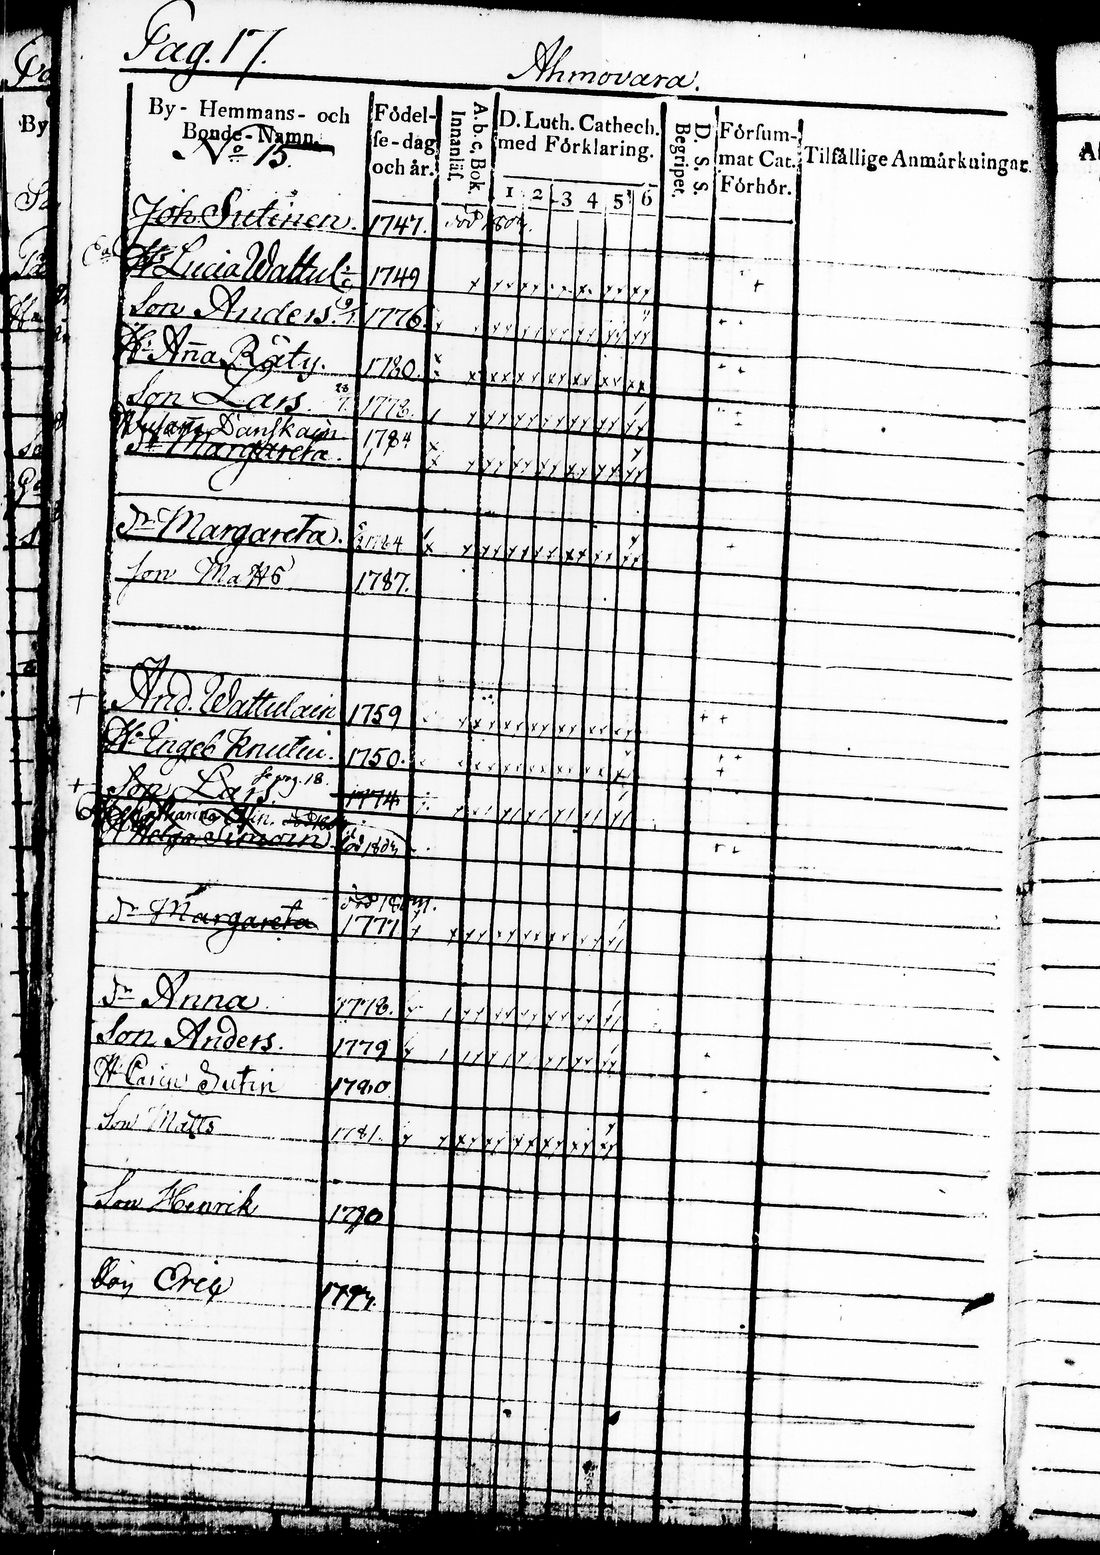 Pag. 17.
Ahmovara.
By- Hemmans- och
Bonde-Namn.
No 15.
Födel-
se-dag
och år.
Innanläs.
A.b.c, Bok.
D. Luth. Cathech.
med Förklaring.
1 2 3 4 5 6
D. S. S.
Begripet.
Försum-
mat Cat.
Förhör.
Tilfällige Anmärkningar.
Joh. Sutinen. 1747.
H. Lucia Wattul 1749
Son Anders. 1776.
H. Anna Räty. 1780.
Son Lars 1778
Danskain 1784
Dr Margareta.
Dr Margareta. 1784
Son Matts 1787.
And. Wattulain 1759
H. Engel Knutin. 1750.
Son Lars. pag. 18. 1774
Helga Simoin
Dr Margareta 1777
Dr Anna 1778.
Son Anders. 1779
H. Carin Sutin 1780
Son Matts 1781.
Son Henrik 1790
Son Eric 1797.